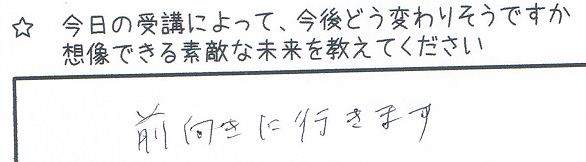 ☆ 今日の受講によって、今後どう変わりそうですか
想像できる素敵な未来を教えてください
前向きに行きます